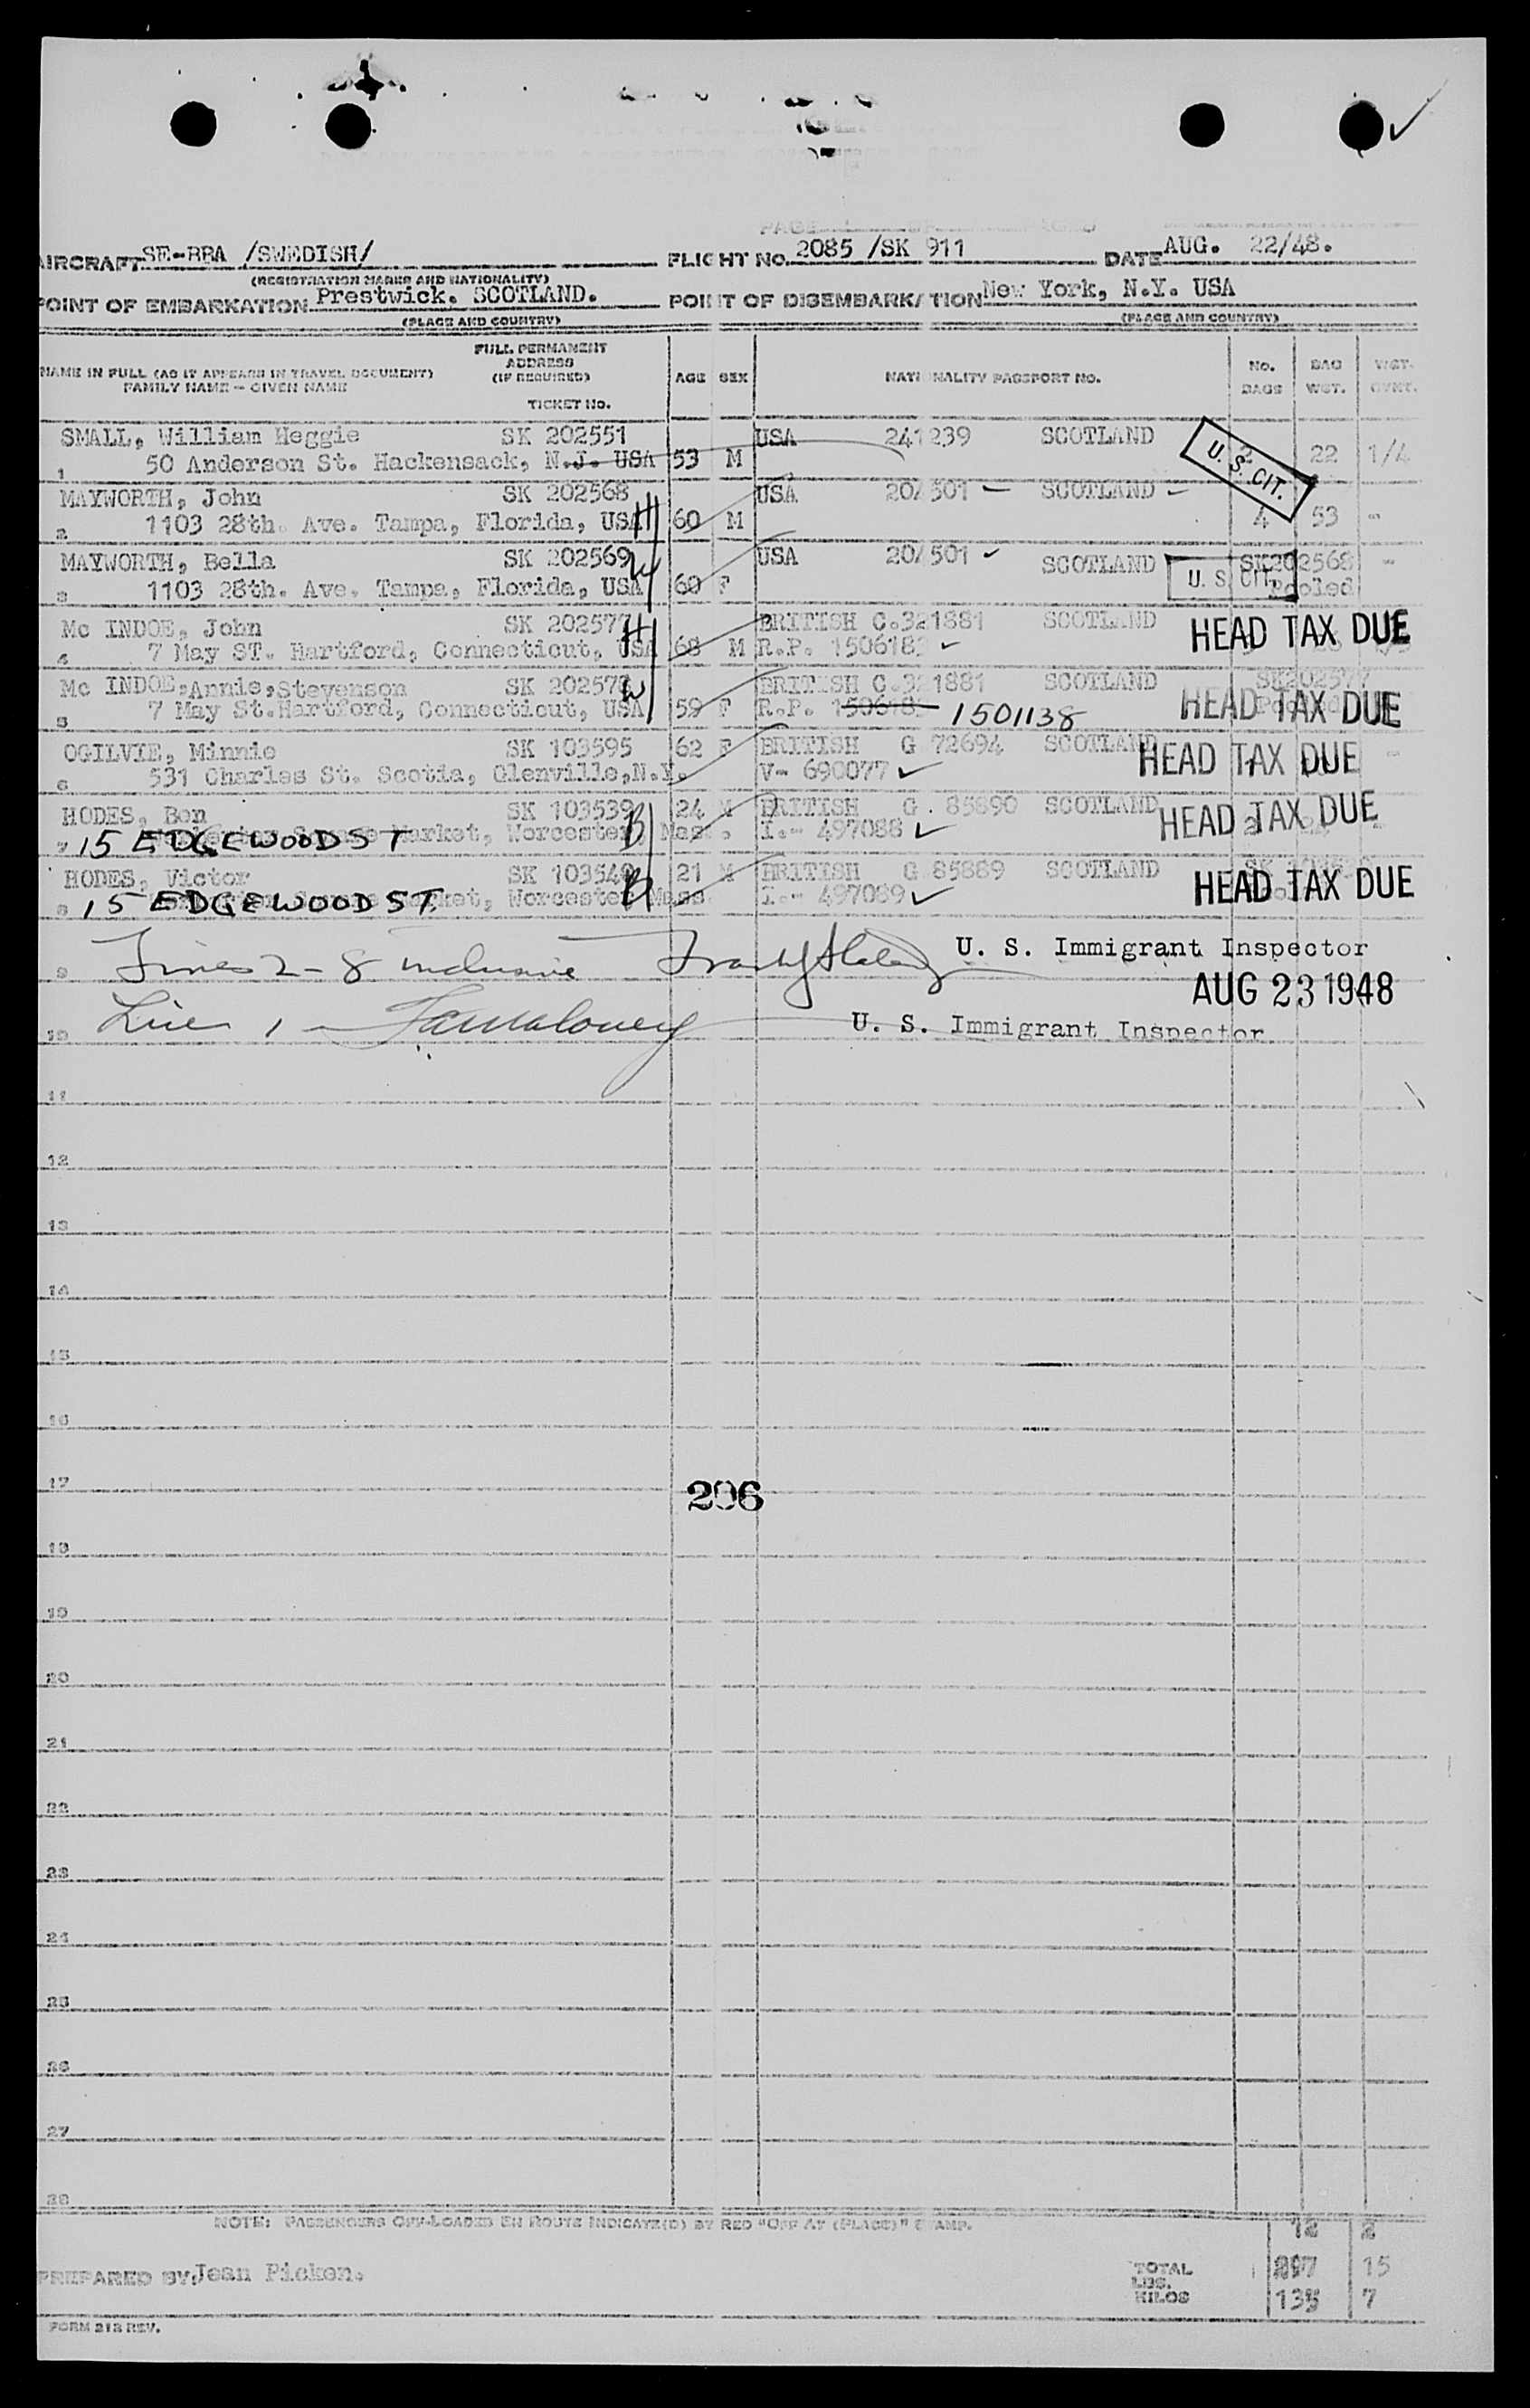 AIRCRAFT SE-BBA /SWEDISH/ FLIGHT NO. 2085 /SK 911 DATE AUG. 22/48.
(REGISTRATION MARKS AND NATIONALITY)
POINT OF EMBARKATION Prestwick. SCOTLAND. POINT OF DISEMBARKATION New York, N.Y. USA
(PLACE AND COUNTRY) (PLACE AND COUNTRY)
NAME IN FULL (AS IT APPEARS IN TRAVEL DOCUMENT) FAMILY NAME - GIVEN NAME
FULL PERMANENT ADDRESS (IF REQUIRED) TICKET NO.
AGE SEX NATIONALITY PASSPORT NO. NO. BAGS BAG WGT. WGT.
SMALL, William Heggie SK 202551 USA 241239 SCOTLAND
1 50 Anderson St. Hackensack, N.J. USA 53 M 2 22 1/4
U.S. CIT.
MAYWORTH, John SK 202568 USA 20 501 SCOTLAND
2 1103 28th. Ave. Tampa, Florida, USA H 60 M 4 53 -
MAYWORTH, Bella SK 202569 W USA 20 501 SCOTLAND SK202568 -
3 1103 28th. Ave. Tampa, Florida, USA 60 F U. S. CIT. Pooled
Mc INDOE, John SK 202577 H BRITISH C.321881 SCOTLAND
4 7 May ST. Hartford, Connecticut, USA 68 M R.P. 150618 HEAD TAX DUE
Mc INDOE, Annie, Stevenson SK 20257 W BRITISH C.321881 SCOTLAND SK202577
5 7 May St. Hartford, Connecticut, USA 59 F R.P. 150618 1501138 HEAD TAX DUE
OGILVIE, Minnie SK 103595 62 F BRITISH G 72694 SCOTLAND
6 531 Charles St. Scotia, Glenville, N.Y. V- 690077 HEAD TAX DUE
HODES, Ben SK 103539 B 24 M BRITISH G. 85890 SCOTLAND
7 15 EDGEWOOD ST Market, Worcester, Mass. I.- 497088 HEAD TAX DUE
HODES, Victor SK 103540 B 21 M BRITISH G 85889 SCOTLAND
8 15 EDGEWOOD ST. Market, Worcester Mass I.- 497089 HEAD TAX DUE
9 Lines 2-8 inclusive U. S. Immigrant Inspector
AUG 23 1948
10 Line 1 - U. S. Immigrant Inspector
11
12
13
14
15
16
17
206
18
19
20
21
22
23
24
25
26
27
28
NOTE: PASSENGERS OFF-LOADED EN ROUTE INDICATE(D) BY RED "OFF AT (PLACE)" STAMP.
12 2
PREPARED BY Jean Picken. TOTAL LBS. 297 15
KILOS 135 7
FORM 212 REV.